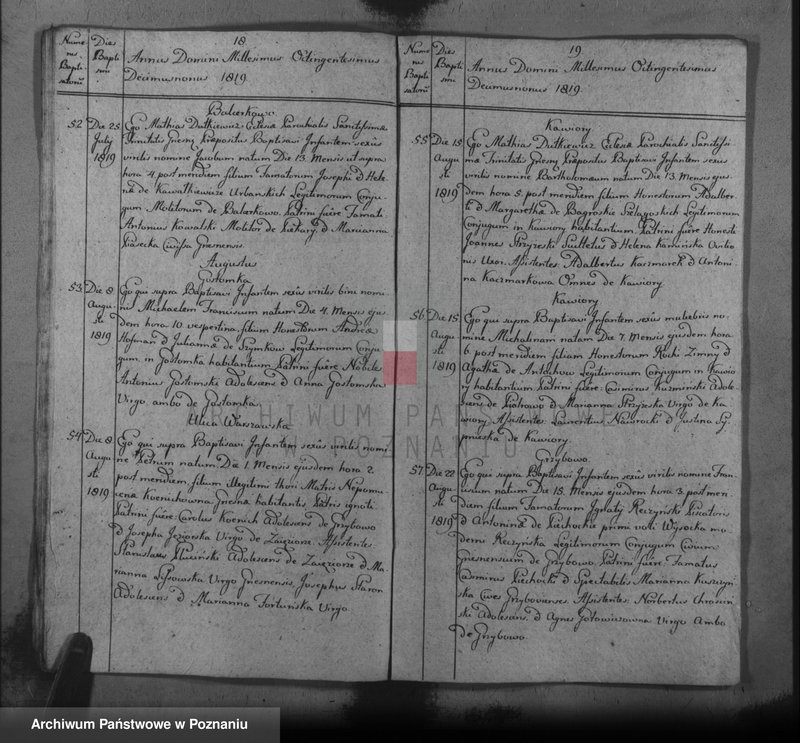 18
Nume
rus
Bapti
satorũ
Dies
Bapti
smi
Annus Domini Millesimus Octingentesimus
Decimusnonus 1819
Balczkowo
52
Die 25
July
1819
Ego Mathias Dutkiewicz Eclesiæ Parochialis Sanctissimæ
Trinitatis Gnesnẽ Præpositus Baptisavi Infantem sexûs
virilis nomine Jacobum natum Die 13. Mensis ut supra
hora 4. post meridiem filium Famatorum Josephi & Hele
næ de Urbańskich Legitimorum Conju
gum Molitorum de Patrini fuêre Famati
Antonius Kowalski Molitor de Piekary & Marianna
Piasecka Gnesnensis.
Augustus
Gostomka
53
Die 8
Augu
sti
1819
Ego qui supra Baptisavi Infantem sexûs virilis bini nomi
nis Michaelem natum Die 4. Mensis ejus
dem hora 10. vespertina filium Honestorum Andreæ
Hofman & Juliannæ de Legitimorum Conju
gum in Gostomka habitantium Patrini fuêre
Antonius Gostomski Adolescens & Anna Gostomska
Virgo ambo de Gostomka.
Ulica Warszawska
54
Die 8
Augu
sti
1819
Ego qui supra Baptisavi Infantem sexûs virilis nomi
ne Petrum natum Die 1. Mensis ejusdem hora 2
post meridiem filium illegitimi thori Matris Nepomu
cena Koenichowna Gnesnæ habitantis Patris ignoti
Patrini fuêre Carolus Koenich Adolescens de Grzybowo
& Josepha Jeziorska Virgo de Assistentes
Stanislaus Adolescens de & Ma
rianna Virgo Gnesnensis, Josephus Staron
Adolescens & Marianna Virgo
19
Nume
rus
Bapti
satorũ
Dies
Bapti
smi
Annus Domini Millesimus Octingentesimus
Decimusnonus 1819
Kawiory
55
Die 15
Augu
sti
1819
Ego Mathias Dutkiewicz Eclesiæ Parochialis Sanctissi
mæ Trinitatis Gnesnẽ Præpositus Baptisavi Infantem sexûs
virilis nomine Bartholomæum natum Die 13. Mensis ejus
dem hora 5. post meridiem filium Honestorum Adalber
ti & Margarethæ de Szelągoskich Legitimorum
Conjugum in Kawiory habitantium Patrini fuêre Honesti
Joannes Stryzeski Scultetus & Helena Kamińska
Uxor. Assistentes Adalbertus Kaczmarek & Antoni
na Kaczmarkowa Omnes de Kawiory
Kawiory
56
Die 15
Augu
sti
1819
Ego qui supra Baptisavi Infantem sexûs muliebris no
mine Michalinam natam Die 7. Mensis ejusdem hora
6. post meridiem filiam Honestorum Rochi Zimny &
Agathæ de Legitimorum Conjugum in Kawio
ry habitantium Patrini fuêre Casimirus Kuzmiński Adole
scens de Piotrowo & Marianna Stryzeska Virgo de Ka
wiory Assistentes Laurentius Nawrocki & Justina Sy
de Kawiory
Grzybowo
57
Die 22
Augu
sti
1819
Ego qui supra Baptisavi Infantem sexûs virilis nomine Fran
natum Die 15. Mensis ejusdem hora 3. post meri
diem filium Famatorum Ignaty Reczyński
& Antoninæ de Ciechockie primi voti Wysocka mo
derni Reczyńska Legitimorum Conjugum Civium
Gnesnensium de Grzybowo Patrini fuêre Famatus
Casimirus Ciechocki & Spectabilis Marianna
ska Cives Grzybovienses. Assistentes Norbertus
ski Adolescens & Agnes Virgo Ambo
de Grzybowo
ARCHIWUM PAŃ
POZNANIU
Archiwum Państwowe w Poznaniu